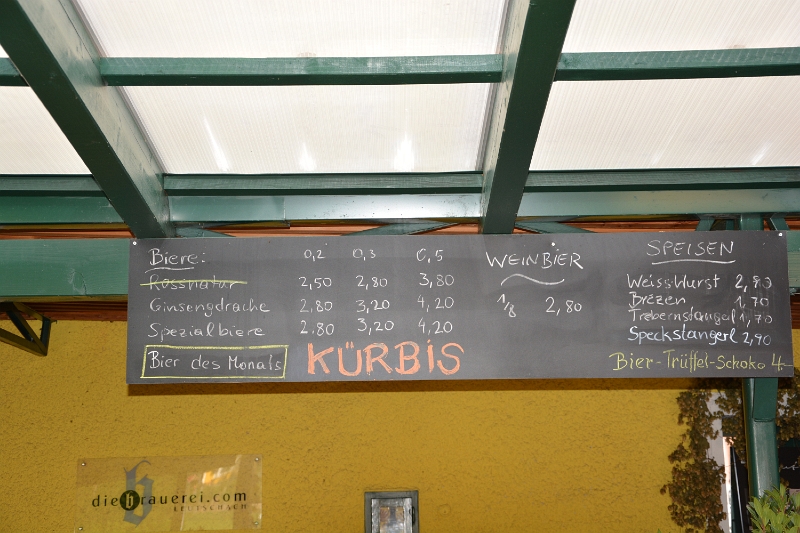 Biere: 0,2 0,3 0,5
Rossnatur 2,50 2,80 3,80
Ginsengdrache 2.80 3,20 4,20
Spezialbiere 2.80 3,20 4,20
Bier des Monats KÜRBIS
WEINBIER
1/8 2,80
SPEISEN
WEISSWURST 2,90
Brezen 1,70
Trebernstangerl 1,70
Speckstangerl 2,90
Bier-Trüffel-Schoko 4.-
diebrauerei.com
LEUTSCHACH